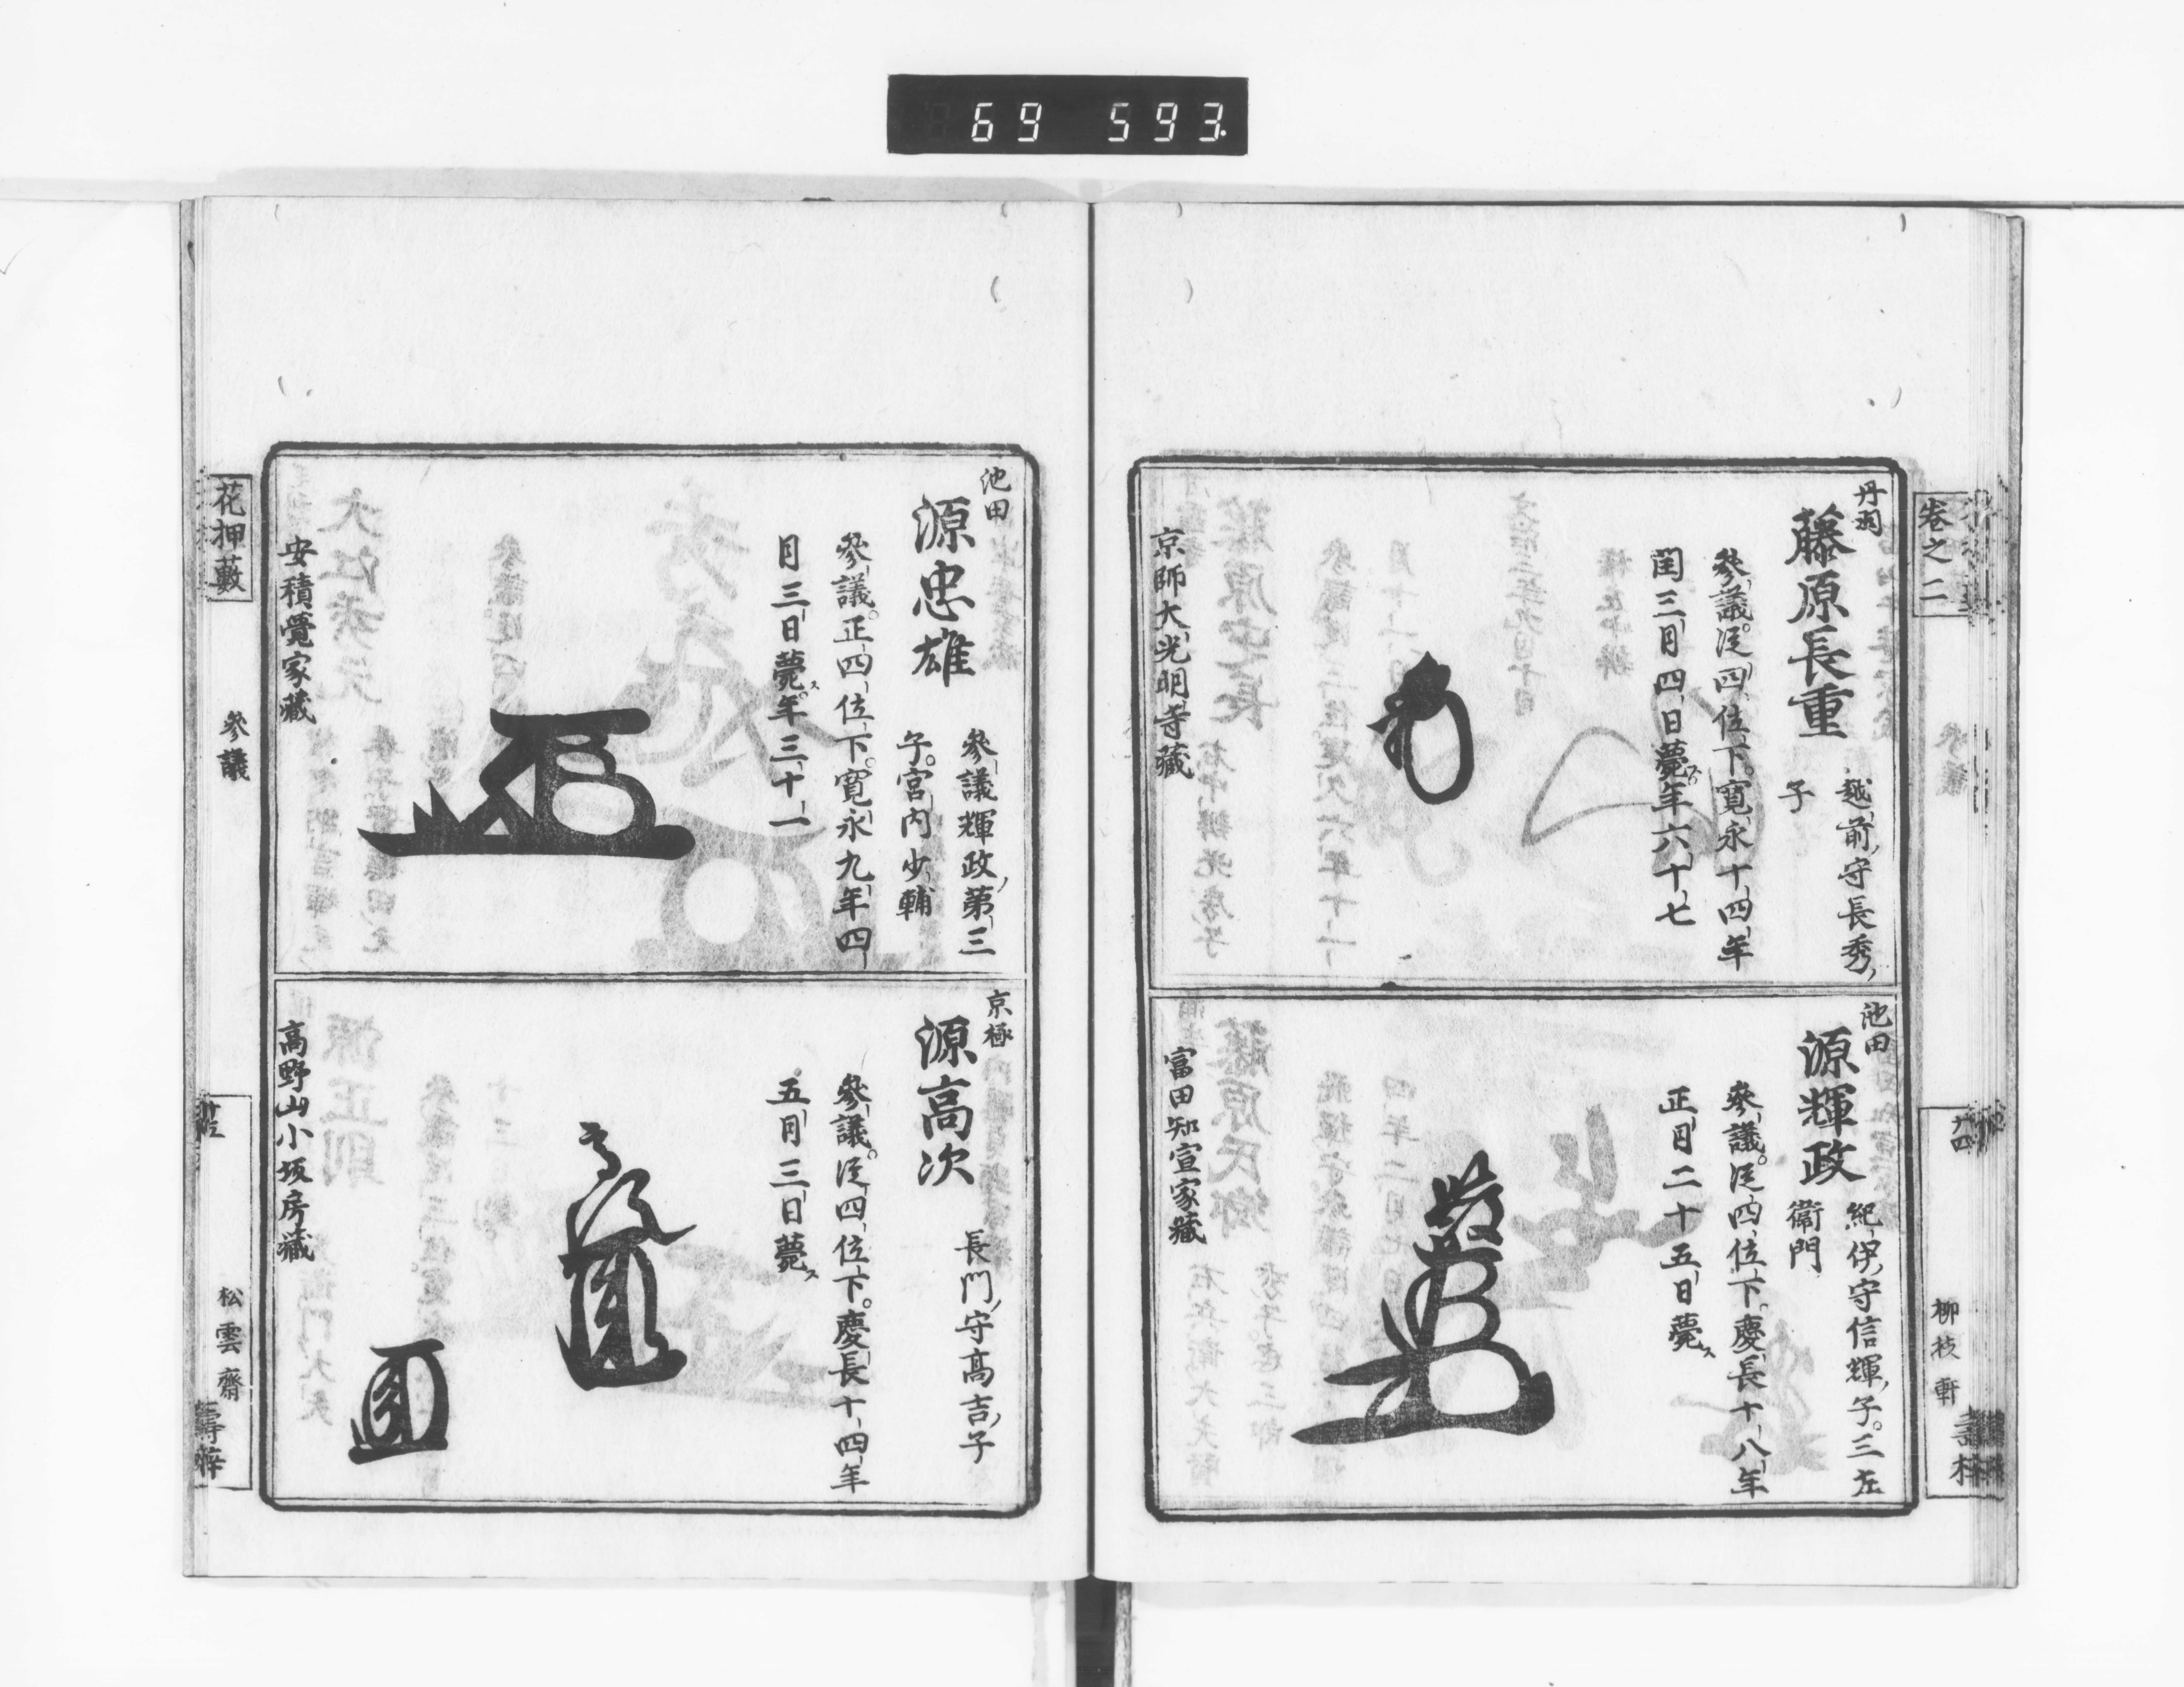 69 593.
卷之二
廿四
柳枝軒
丹羽
藤原長重
越前守長秀
子
參議。從四位下。寬永十四年
閏三月四日薨。年六十七
京師大光明寺藏
池田
源輝政
紀伊守信輝子。三左
衞門
參議。從四位下。慶長十八年
正月二十五日薨ス
富田知宣家藏
池田
源忠雄
參議輝政第三
子。宮內少輔
參議。正四位下。寬永九年四
月三日薨ス。年三十一
安積覺家藏
京極
源高次
長門守高吉子
參議。從四位下。慶長十四年
五月三日薨ス
高野山小坂房藏
花押藪
參議
松雲齋